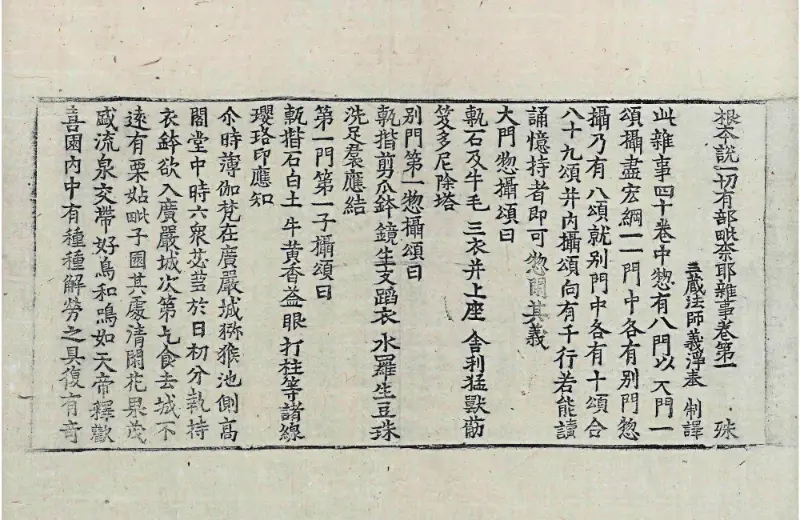 根夲說一切有部毗奈耶雜事卷第一 殊
三藏法師義淨奉 制譯
此雜事四十卷中惣有八門以大門一
頌攝盡宏綱一一門中各有別門惣
攝乃有八頌就別門中各有十頌合
八十九頌并内攝頌向有千行若能讀
誦憶持者即可惣閑其義
大門惣攝頌曰
甎石及牛毛 三衣并上座 舍利猛獸筋
笈多尼除塔
別門第一惣攝頌曰
甎揩剪爪鉢 鏡生支蹈衣 水羅生豆珠
洗足裠應結
第一門第一子攝頌曰
甎揩石白土 牛黄香益眼 打柱等諸線
瓔珞印應知
尒時薄伽梵在廣嚴城猕猴池側高
閣堂中時六衆苾芻於日初分執持
衣鉢欲入廣嚴城次第乞食去城不
遠有栗姑毗子園其處清閑花果茂
盛流泉交帶好鳥和鳴如天帝釋歡
喜園内中有種種解勞之具復有奇